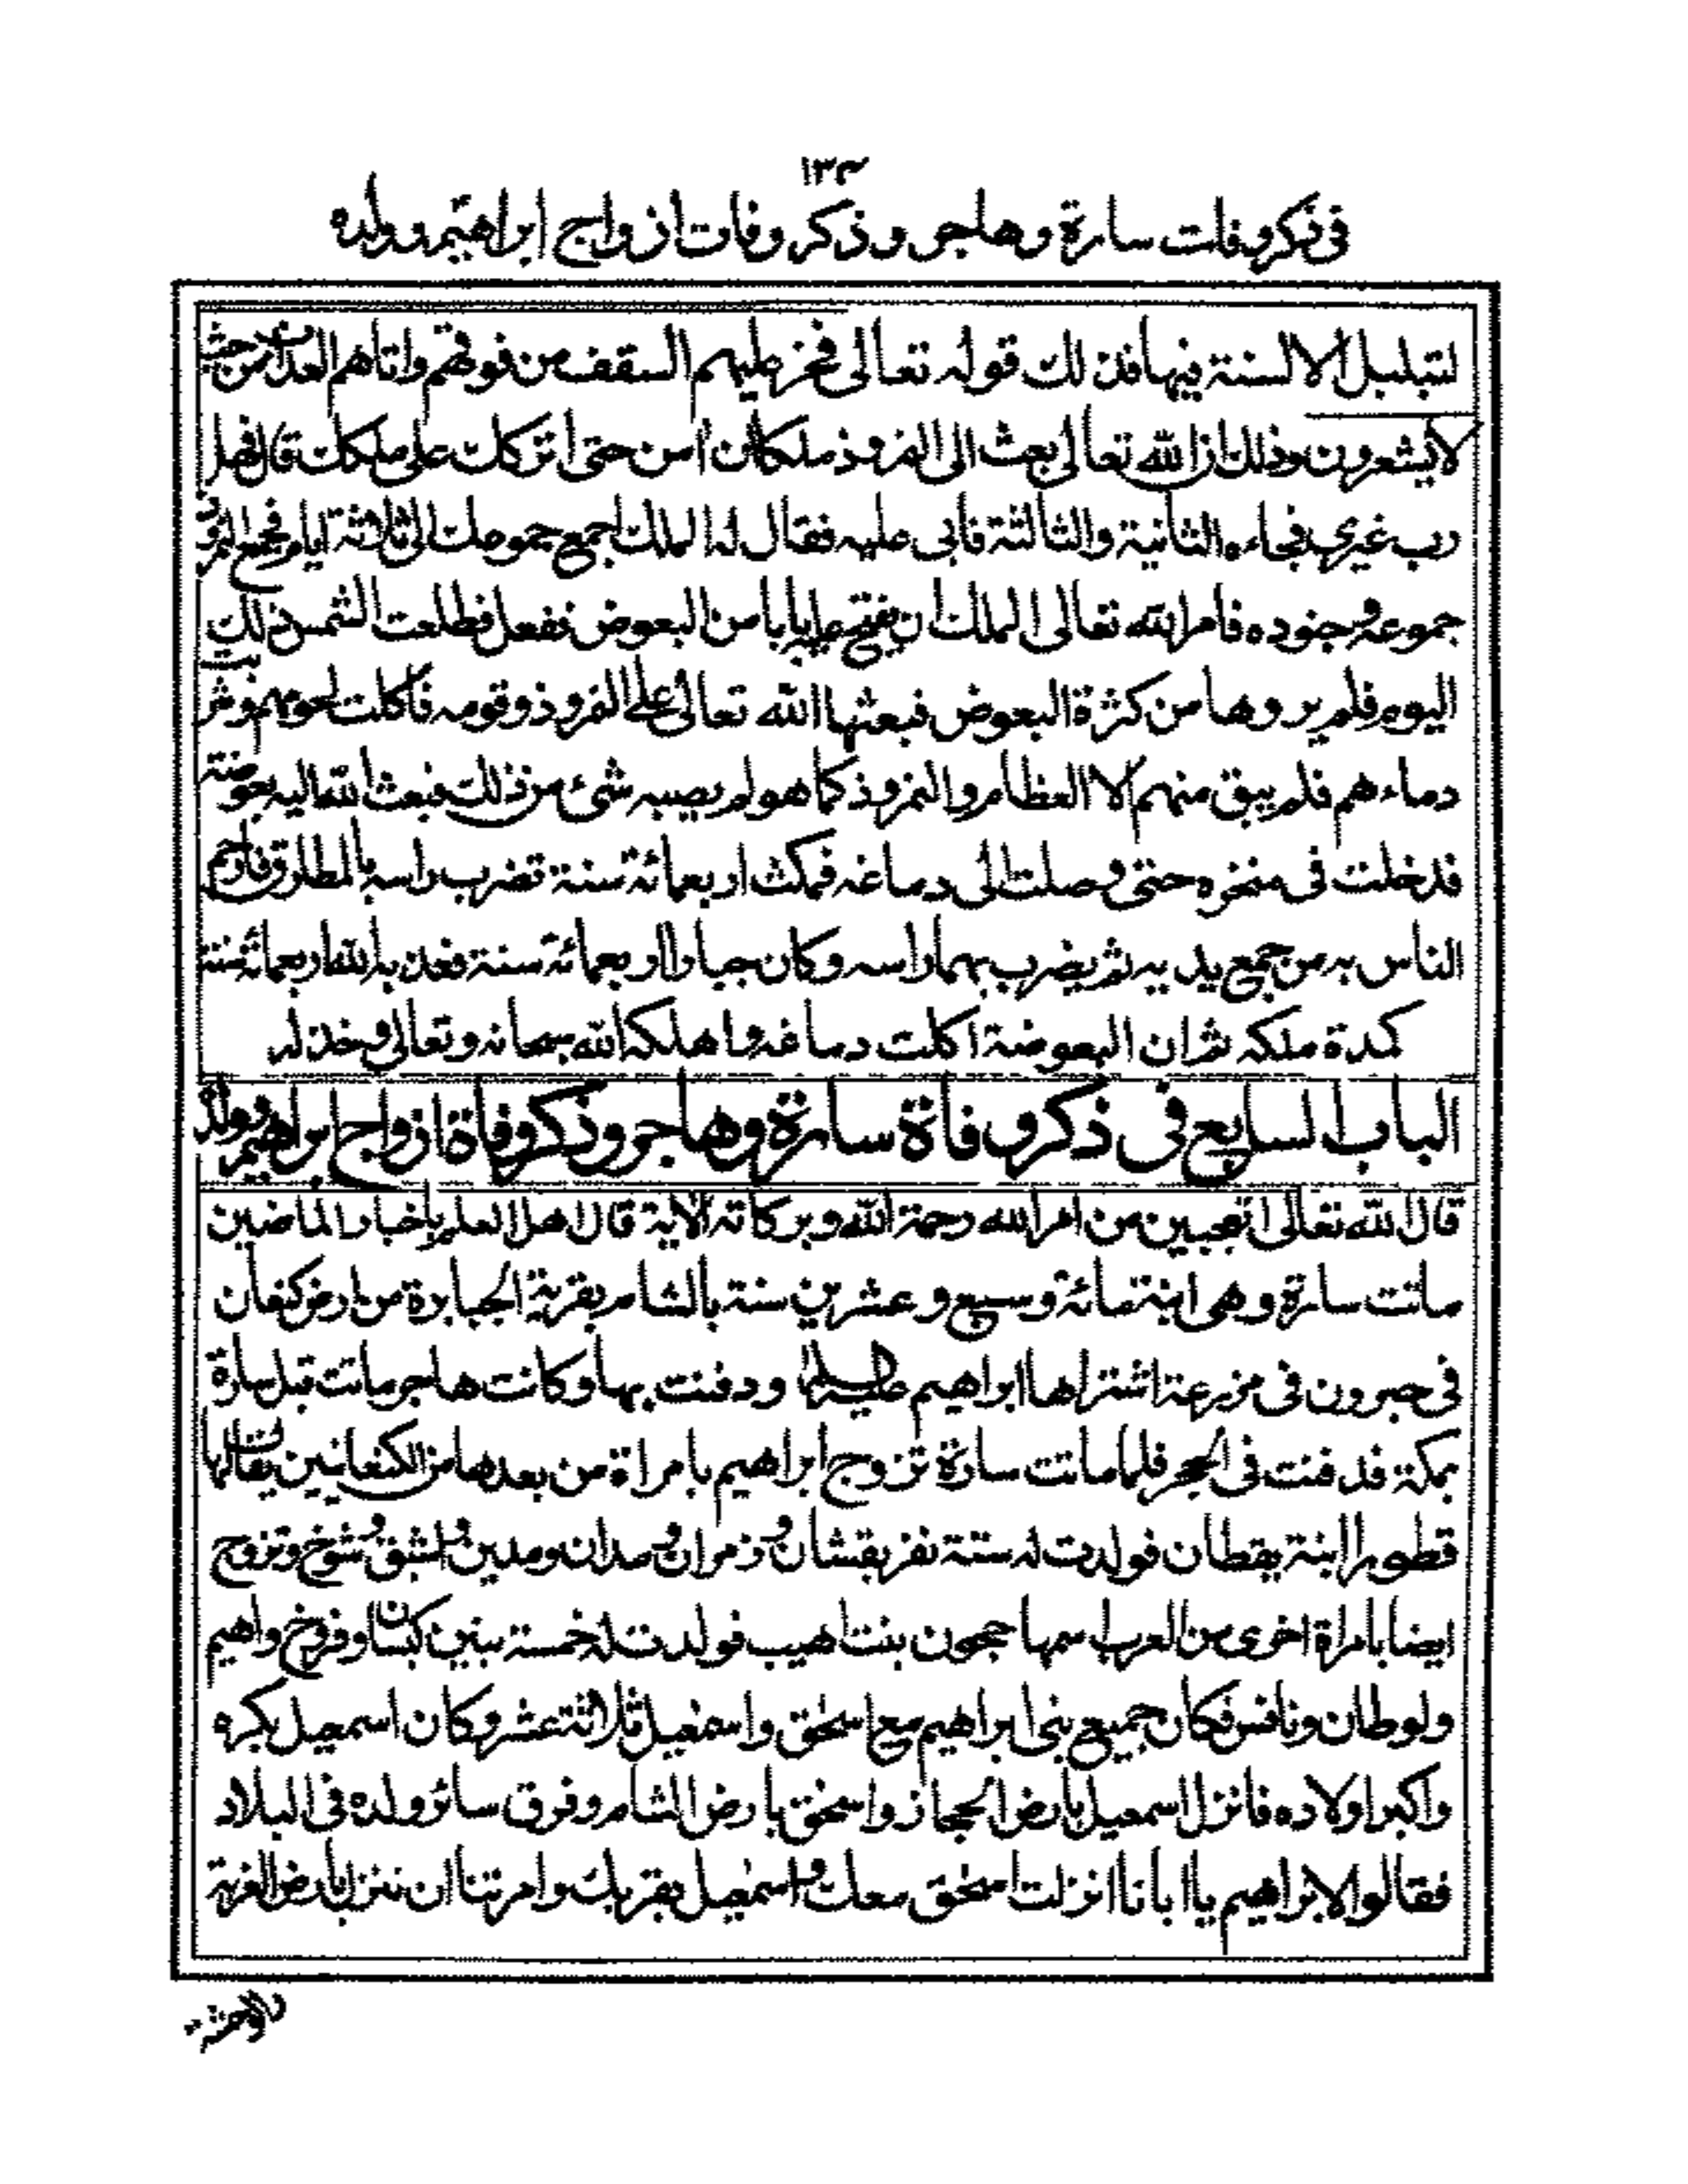 ١٣٤
فى ذكر وفات سارة وهاجر وذكر وفات ازواج ابراهيم وولده
لتبلبل الالسنة فيها فذلك قوله تعالى فخر عليهم السقف من فوقهم واتاهم العذاب من حيث
لا يشعرون وذلك ان الله تعالى بعث الى النمروذ ملكا ان امن حتى اتركك على ملكك قال فهل
رب غيرى فجاءه الثانية والثالثة فابى عليه فقال له الملك اجمع جموعك الى ثلاثة ايام فجمع النمروذ
جموعه وجنوده فامر الله تعالى الملك ان يفتح عليه بابا من البعوض ففعل فطلعت الشمس ذلك
اليوم فلم يروها من كثرة البعوض فبعثها الله تعالى على النمروذ وقومه فاكلت لحومهم وشربت
دماءهم فلم يبق منهم الا العظام والنمروذ كما هو لم يصبه شئ من ذلك فبعث الله اليه بعوضة
فدخلت فى منخره حتى وصلت الى دماغه فمكث اربعمائة سنة تضرب راسه بالمطارق فارحم
الناس به من جمع يديه ثم يضرب بهما راسه وكان جبارا اربعمائة سنة فعذبه الله اربعمائة سنة
كمدة ملكه ثم ان البعوضة اكلت دماغه واهلكه الله سبحانه وتعالى وخذله
الباب السابع فى ذكر وفاة سارة وهاجر وذكر وفاة ازواج ابراهيم وولده
قال الله تعالى اتعجبين من امر الله رحمة الله وبركاته الاية قال اهل العلم باخبار الماضين
ماتت سارة وهى ابنة مائة وسبع وعشرين سنة بالشام بقرية الجبابرة من ارض كنعان
فى حبرون فى مزرعة اشتراها ابراهيم عليه السلام ودفنت بها وكانت هاجر ماتت قبل سارة
بمكة فدفنت فى الحجر فلما ماتت سارة تزوج ابراهيم بامراة من بعدها من الكنعانيين يقال لها
قطورا ابنة يقطان فولدت له ستة نفر يقشان وزمران ومدان ومدين واشبق وشوخ وتزوج
ايضا بامراة اخرى من العرب اسمها حجون بنت اهيب فولدت له خمسة بنين كيسان وفروخ واهيم
ولوطان ونافس فكان جميع بنى ابراهيم مع اسحق واسمعيل ثلاثة عشر وكان اسمعيل بكره
واكبر اولاده فانزل اسمعيل بارض الحجاز واسحق بارض الشام وفرق سائر ولده فى البلاد
فقالوا لابراهيم يا ابانا انزلت اسحق معك واسمعيل بقربك وامرتنا ان ننزل بارض الغربة
والوحشة